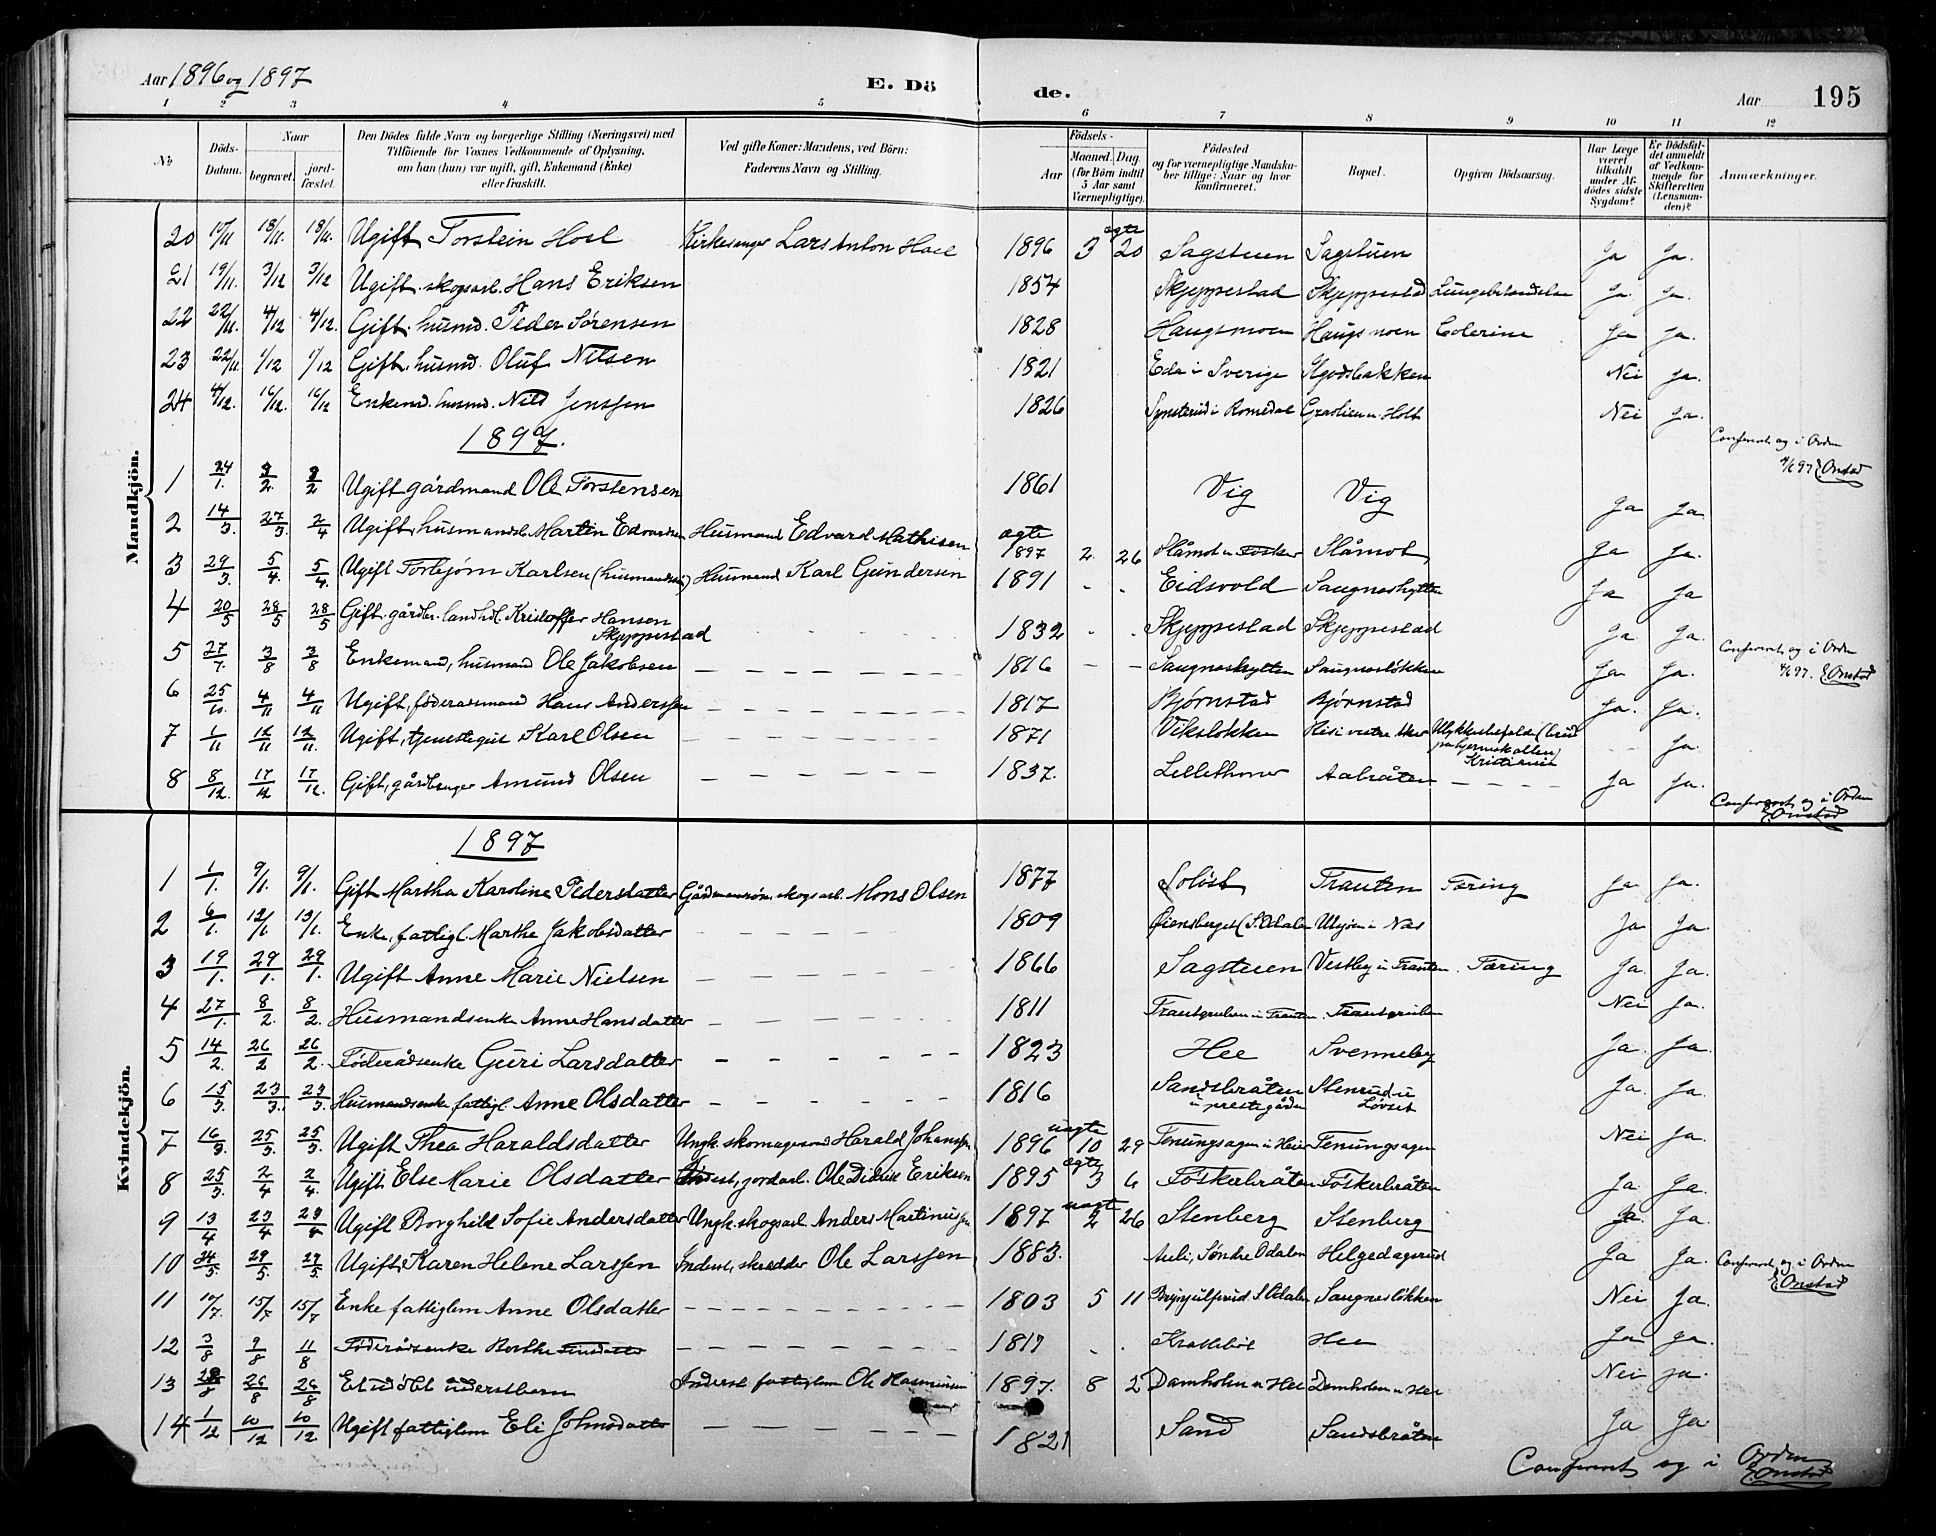 Aar 1896 og 1897 E. Dö de. Aar 195
1 2 3 4 5 6 7 8 9 10 11 12
No
Döds-Datum.
Naar
begravet.
jord-fæstet.
Den Dödes fulde Navn og borgerlige Stilling (Næringsvei) med
Tilföiende for Voxnes Vedkommende af Oplysning,
om han (hun) var ugift, gift, Enkemand (Enke)
eller fraskilt.
Ved gifte Koner: Mandens, ved Börn:
Faderens Navn og Stilling.
Födsels-
Aar
Maaned. Dag.
(for Börn indtil
5 Aar samt
Værnepligtige).
Födested
og for værnepligtige Mandska-
ber tillige: Naar og hvor
konfirmeret.
Bopæl.
Opgiven Dödsaarsag.
Har Læge
været
tilkaldt
under Af-
dödes sidste
Sygdom?
Er Dödsfal-
det anmeldt
af Vedkom-
mende for
Skifteretten
(Lensman-
den)?
Anmærkninger.
Mandkjön.
20 17/11 18/11. 18/11. Ugift Torstein Hoel Kirkesanger Lars Anton Hoel 1896 3 ægte 20 Sagstuen Sagstuen Ja Ja.
21 19/11. 3/12 3/12 Ugift. skogsarb. Hans Eriksen 1854 Skjeppestad Skjeppestad Lungebetændelse Ja. Ja.
22 22/11. 4/12 4/12. Gift. husmd. Peder Sørensen 1828 Haugsmoen Haugsmoen Colerine Ja Ja.
23 22/11 1/12 1/12 Gift. husmd. Oluf Nilsen 1821 Eda i Sverige Nei Ja.
24 4/12. 16/12. 16/12 Enkemd. husmd. Nils Jenssen 1826 i Romedal Holt Nei Ja.
Conferert og i Orden
97 E Onstad
1897.
1 24/1. 3/2. 3/2 Ugift gårdmand Ole Torstensen 1861 Vig Vig Ja Ja
2 14/3. 27/3. 2/4 Ugift, husmandsb. Martin Edvardsen Husmand Edvard Mathisen ægte 1897 2. 26 Slåmot Slåmot Ja Ja.
3 29/3. 5/4. 5/4. Ugift Torbjørn Karlsen Husmand Karl Gundersen 1891 Eidsvold Saugneshytten Ja Ja
4 20/5 28/5 28/5 Gift. gårdbr. landhdl. Kristoffer Hansen
Skjeppestad 1832 Skjeppestad Skjeppestad Ja Ja.
5 27/7. 3/8 3/8 Enkemand, husmand Ole Jakobsen 1816 Saugneshytten Saugnesløkken Ja. Ja.
Conferert og i Orden
97. E. Onstad
6 25/10. 4/11 4/11 Ugift, føderaadsmand Hans Anderssen 1817 Bjørnstad Bjørnstad Ja. Ja.
7 1/11 12/11 12/11. Ugift, tjenestegut Karl Olsen 1871 Viksløkken Ulykkestilfælde (brud
på hjerneskallen)
Kristiania Ja.
8 8/12. 17/12 17/12 Gift, gårdbruger Amund Olsen 1837. Ja Ja.
Conferert og i Orden
E. Onstad
Kvindekjön.
1897
1 1/1. 9/1. 9/1. Gift Martha Karoline Pedersdatter skogsarb. Mons Olsen 1877 Trauten Tæring Ja Ja.
2 6/1. 12/1 13/1. Enke, fattigl. Marthe Jakobsdatter 1809 (S. Odalen i Næs Ja Ja
3 19/1. 29/1. 29/1. Ugift Anne Marie Nielsen 1866 Sagstuen Vestby u Trauten Tæring Ja. Ja.
4 27/1. 8/2. 8/2. Husmandsenke Anne Hansdatter 1811 Trautsgruben u Trauten Trautsgruben Nei Ja.
5 14/2. 26/2 26/2. Føderådsenke Guri Larsdatter 1823 Hee Svenneby Ja Ja.
6 15/3. 23/3. 23/3. Husmandsenke fattigl. Anne Olsdatter 1816 Sandsbråten
u prestegården Stenrud u
Løvset Ja Ja.
7 16/3. 25/3. 25/3. Ugift Thea Haraldsdatter Ungk. skomagersvend Harald Johanssen 1896 uægte 10 29 Tenungsagen u Heier Tenungsagen Nei Ja.
8 25/3. 2/4 2/4. Ugift Else Marie Olsdatter Inderst, jordarb. Ole Didrik Eriksen 1895 ægte 3 6 Foskerbråten Foskerbråten Ja. Ja.
9 13/4 23/4 23/4 Ugift Borghild Sofie Andersdatter Ungk. skogsarb Anders Martinussen 1897 uægte 2 26 Stenberg Stenberg Ja. Ja.
10 24/5. 29/5. 29/5. Ugift Karen Helene Larssen Inderst, skrædder Ole Larssen 1883. Søndre Odalen Helgedagsrud Ja Ja.
Conferert og i Orden
E. Onstad
11 10/7. 15/7 15/7 Enke fattiglem Anne Olsdatter 1803 5 11 S. Odalen Saugnesløkken Nei Ja.
12 3/8 9/8 11/8 Føderådsenke Berthe 1817 Hee Ja Ja.
13 28/8 26/8 26/8 Et udøbt Inderst fattiglem Ole Rasmussen 1897. 8 2 Damholen u Hee Damholen u Hee Nei Ja.
14 1/12 10/12 10/12 Ugift fattiglem Eli Johnsdatter 1821 Sand Sandsbråten Ja Ja
Conferert og i Orden
E. Onstad